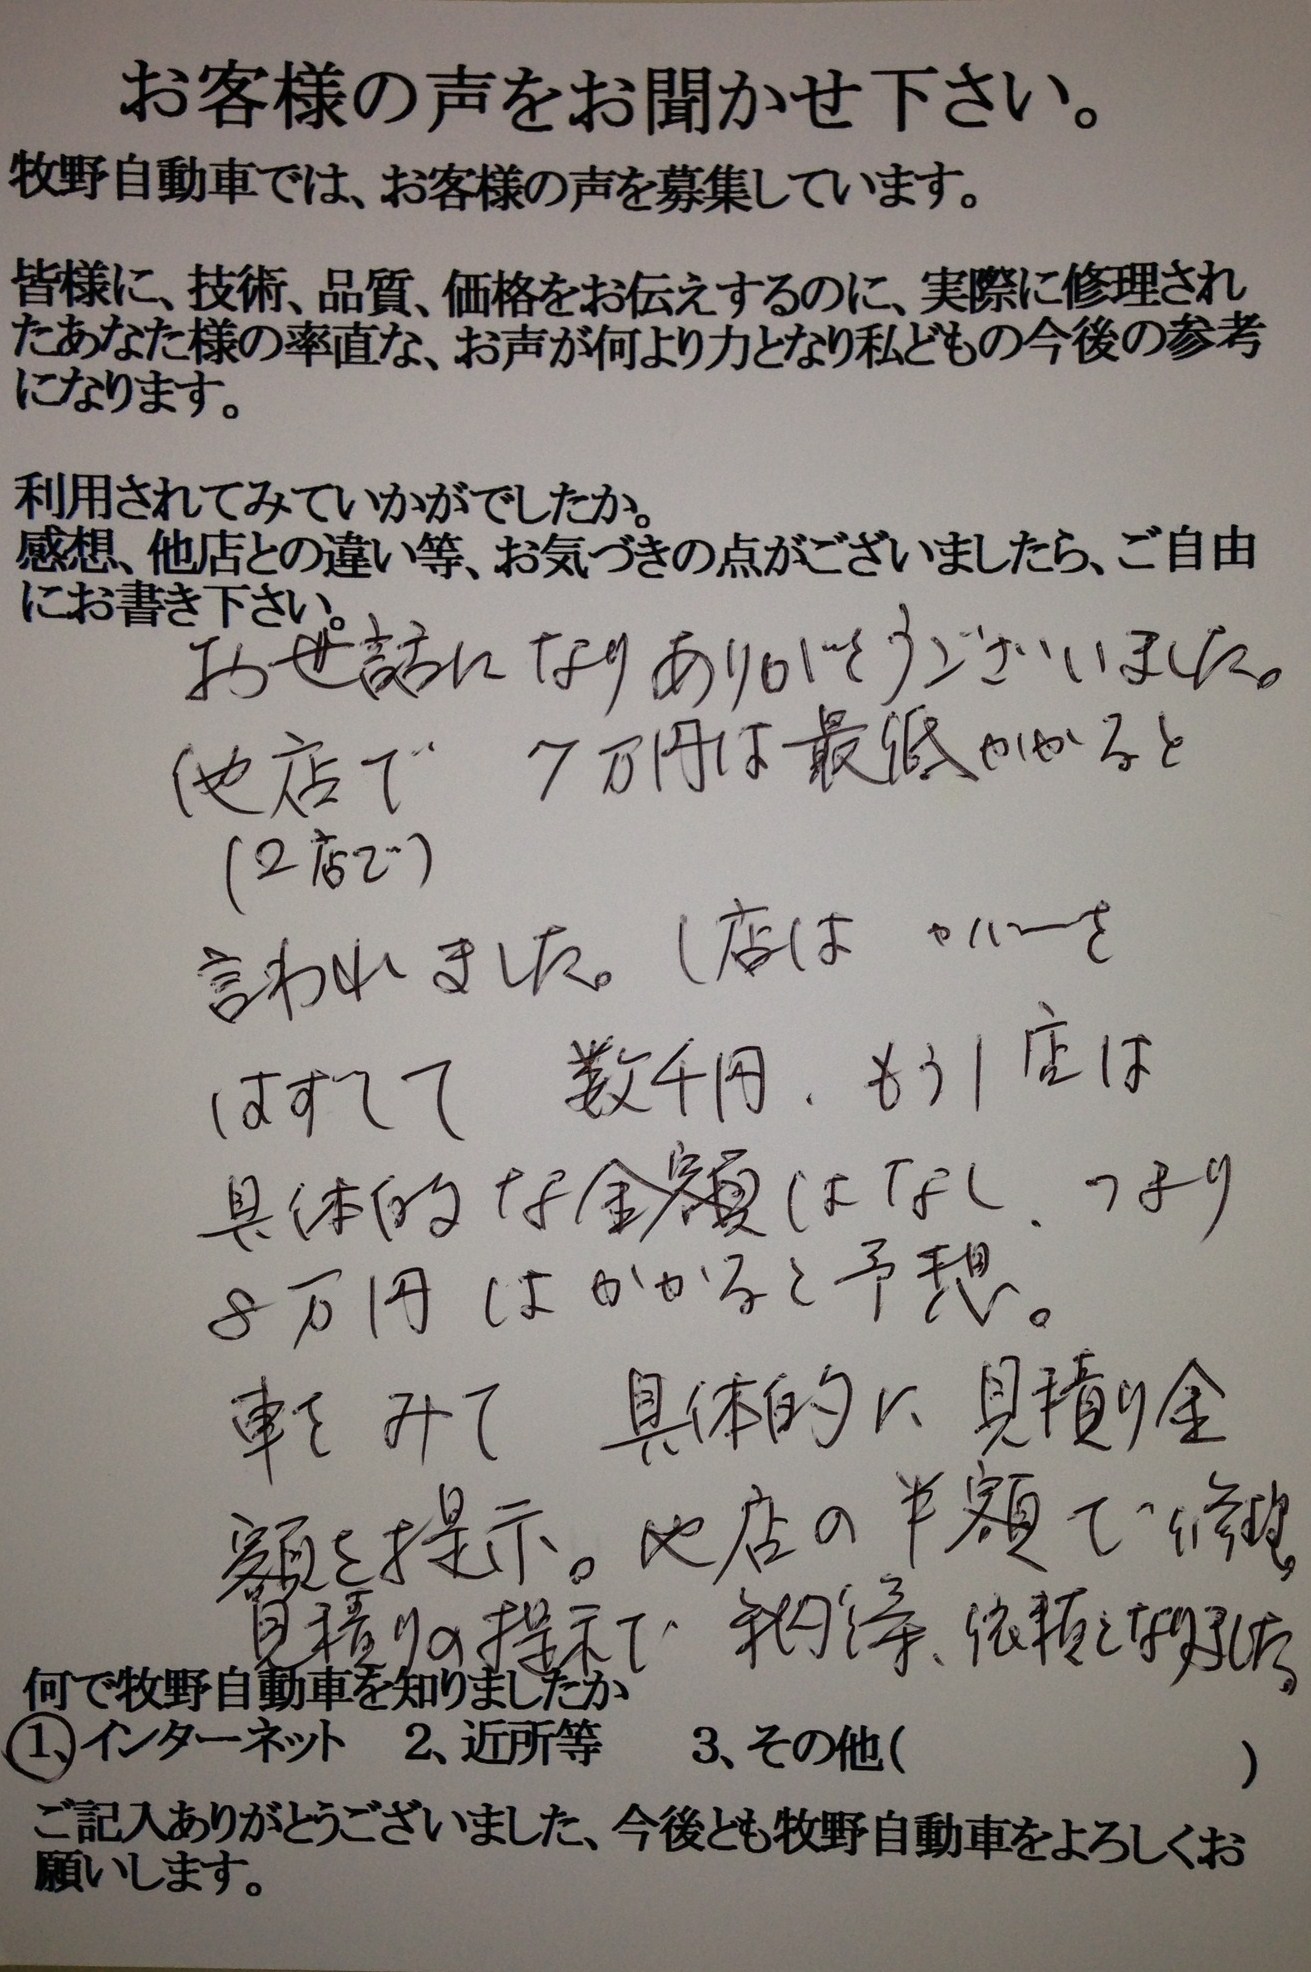 お客様の声をお聞かせ下さい。
牧野自動車では、お客様の声を募集しています。
皆様に、技術、品質、価格をお伝えするのに、実際に修理され
たあなた様の率直な、お声が何より力となり私どもの今後の参考
になります。
利用されてみていかがでしたか。
感想、他店との違い等、お気づきの点がございましたら、ご自由
にお書き下さい。
お世話になりありがとうございました。
他店で 7万円は最低かかると
(2店で)
言われました。1店は カバーを
はずして 数千円、もう1店は
具体的な金額はなし、つまり
8万円はかかると予想。
車をみて 具体的に見積り金
額を提示。他店の半額で修理。
見積りの提示で 納得、依頼となりました。
何で牧野自動車を知りましたか
1、インターネット 2、近所等 3、その他( )
ご記入ありがとうございました、今後とも牧野自動車をよろしくお
願いします。